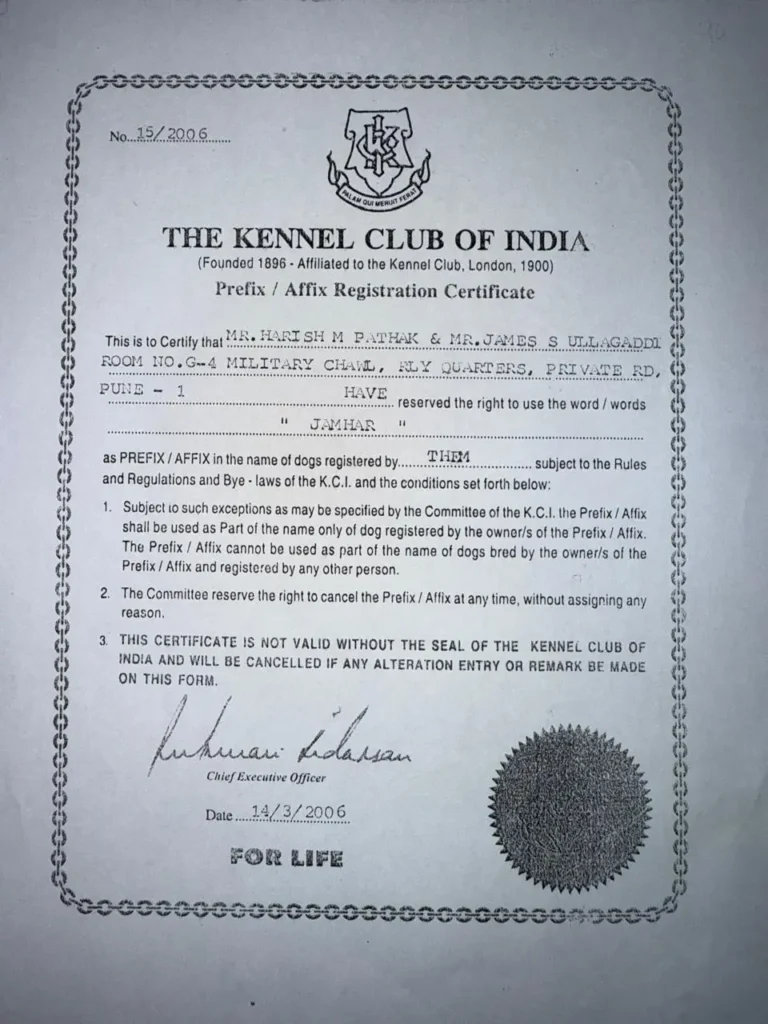 No...15/2006
PALAM QUI MERUIT FERAT
THE KENNEL CLUB OF INDIA
(Founded 1896 - Affiliated to the Kennel Club, London, 1900)
Prefix / Affix Registration Certificate
This is to Certify that MR. HARISH M PATHAK & MR.JAMES S ULLAGADDI
ROOM NO.G-4 MILITARY CHAWL, RLY QUARTERS, PRIVATE RD,
PUNE - 1 HAVE reserved the right to use the word / words
" JAMHAR "
as PREFIX / AFFIX in the name of dogs registered by THEM subject to the Rules
and Regulations and Bye - laws of the K.C.I. and the conditions set forth below:
1. Subject to such exceptions as may be specified by the Committee of the K.C.I. the Prefix / Affix
shall be used as Part of the name only of dog registered by the owner/s of the Prefix / Affix.
The Prefix / Affix cannot be used as part of the name of dogs bred by the owner/s of the
Prefix / Affix and registered by any other person.
2. The Committee reserve the right to cancel the Prefix / Affix at any time, without assigning any
reason.
3. THIS CERTIFICATE IS NOT VALID WITHOUT THE SEAL OF THE KENNEL CLUB OF
INDIA AND WILL BE CANCELLED IF ANY ALTERATION ENTRY OR REMARK BE MADE
ON THIS FORM.
Chief Executive Officer
Date 14/3/2006
FOR LIFE